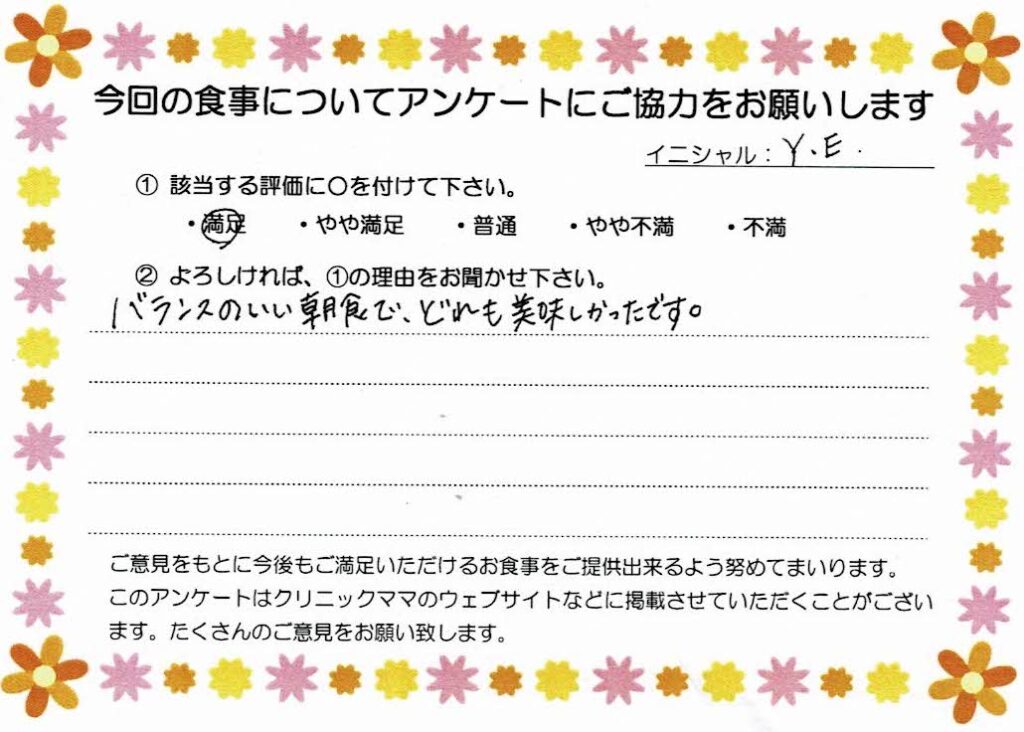 今回の食事についてアンケートにご協力をお願いします
イニシャル：Y.E.
① 該当する評価に〇を付けて下さい。
・満足 ・やや満足 ・普通 ・やや不満 ・不満
② よろしければ、①の理由をお聞かせ下さい。
バランスのいい朝食で、どれも美味しかったです。
ご意見をもとに今後もご満足いただけるお食事をご提供出来るよう努めてまいります。
このアンケートはクリニックママのウェブサイトなどに掲載させていただくことがござい
ます。たくさんのご意見をお願い致します。